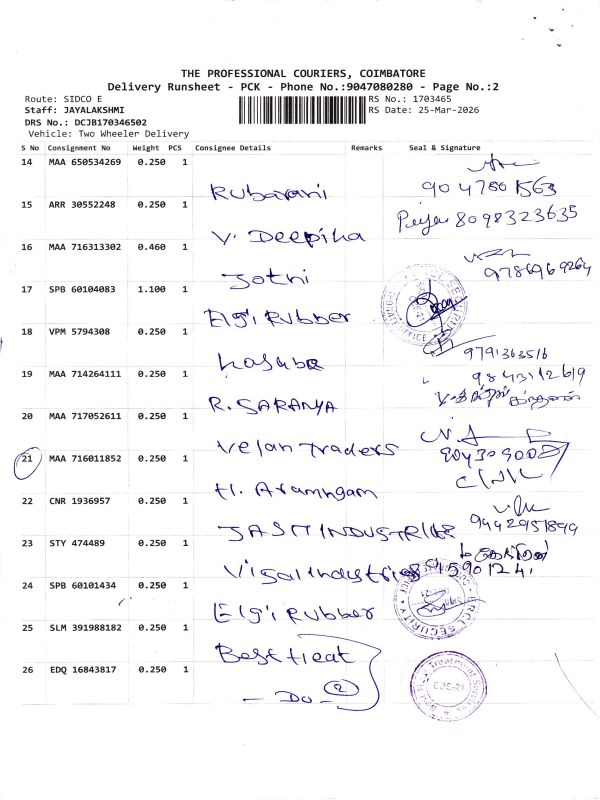 THE PROFESSIONAL COURIERS, COIMBATORE
Delivery Runsheet - PCK - Phone No.:9047080280 - Page No.:2
Route: SIDCO E
RS No.: 1703465
Staff: JAYALAKSHMI
RS Date: 25-Mar-2026
DRS No.: DCJB170346502
Vehicle: Two Wheeler Delivery
S No Consignment No Weight PCS Consignee Details Remarks Seal & Signature
14 MAA 650534269 0.250 1
Rubarani 9047801563
15 ARR 30552248 0.250 1
V. Deepika 8098323635
16 MAA 716313302 0.460 1
Jothi 9786969264
17 SPB 60104083 1.100 1
Elgi Rubber
18 VPM 5794308 0.250 1
9791363516
19 MAA 714264111 0.250 1
9843112619
R. SARANYA
20 MAA 717052611 0.250 1
Velan Traders
21 MAA 716011852 0.250 1
22 CNR 1936957 0.250 1
9442951899
23 STY 474489 0.250 1
24 SPB 60101434 0.250 1
Elgi Rubber
25 SLM 391988182 0.250 1
Best Heat
26 EDQ 16843817 0.250 1
- Do - 2
CBE-21